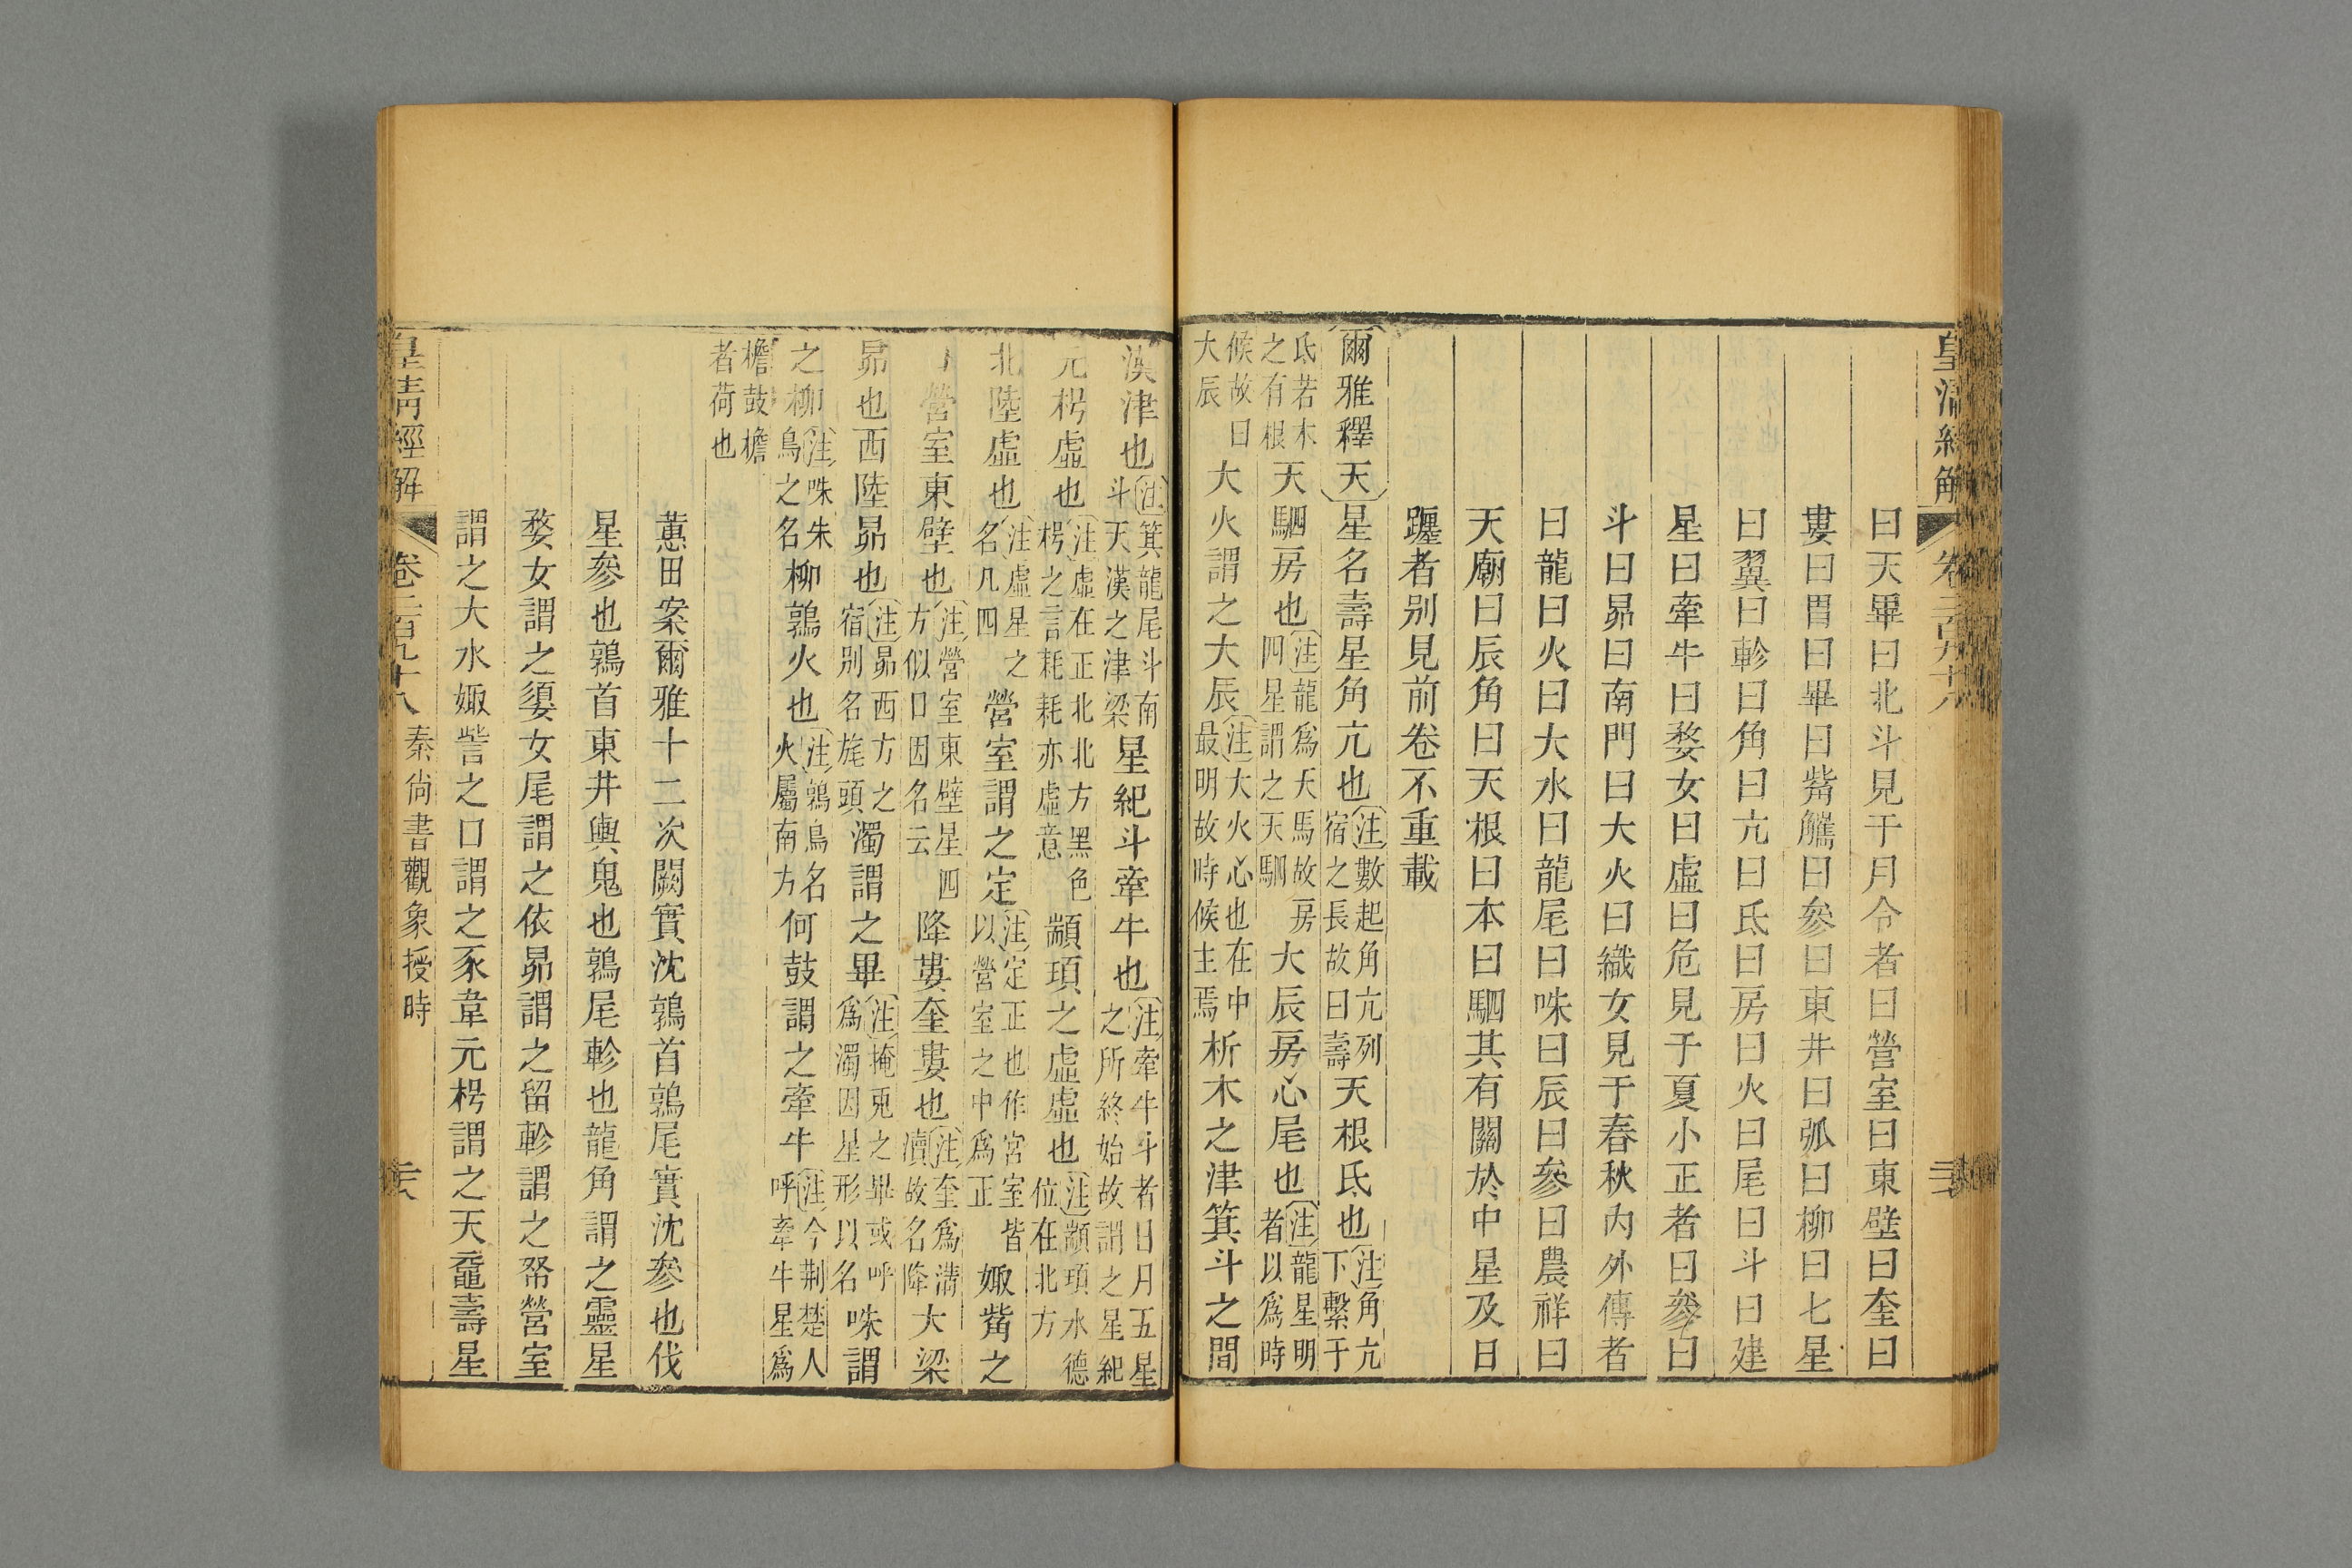 皇清經解 卷二百九十八
曰天畢曰北斗見于月令者曰營室曰東壁曰奎曰
婁曰胃曰畢曰觜觿曰參曰東井曰弧曰柳曰七星
曰翼曰軫曰角曰亢曰氐曰房曰火曰尾曰斗曰建
星曰牽牛曰婺女曰虛曰危見于夏小正者曰參曰
斗曰昴曰南門曰大火曰織女見于春秋內外傳者
曰龍曰火曰大水曰龍尾曰咮曰辰曰參曰農祥曰
天廟曰辰角曰天根曰本曰駟其有關於中星及日
躔者别見前卷不重載
爾雅釋天星名壽星角亢也注數起角亢列宿之長故曰壽天根氐也注角亢下繫于
氐若木之有根天駟房也注龍爲天馬故房四星謂之天駟大辰房心尾也注龍星明者以爲時
候故曰大辰大火謂之大辰注大火心也在中最明故時候主焉析木之津箕斗之間
漢津也注箕龍尾斗南斗天漢之津梁星紀斗牽牛也注牽牛斗者日月五星之所終始故謂之星紀
元枵虛也注虛在正北北方黑色枵之言耗耗亦虛意顓頊之虛虛也注顓頊水德位在北方
北陸虛也注虛星之名凡四營室謂之定注定正也作宮室皆以營室之中爲正娵觜之
口營室東壁也注營室東壁星四方似口因名云降婁奎婁也注奎爲溝瀆故名降大梁
昴也西陸昴也注昴西方之宿别名旄頭濁謂之畢注掩兎之畢或呼爲濁因星形以名咮謂
之柳注咮朱鳥之名柳鶉火也注鶉鳥名火屬南方何鼓謂之牽牛注今荆楚人呼牽牛星爲
檐鼓檐者荷也
蕙田案爾雅十二次闕實沈鶉首鶉尾實沈參也伐
星參也鶉首東井輿鬼也鶉尾軫也龍角謂之靈星
婺女謂之嬃女尾謂之依昴謂之留軫謂之帑營室
謂之大水娵訾之口謂之豕韋元枵謂之天黿壽星
皇清經解 卷二百九十八 秦尚書觀象授時